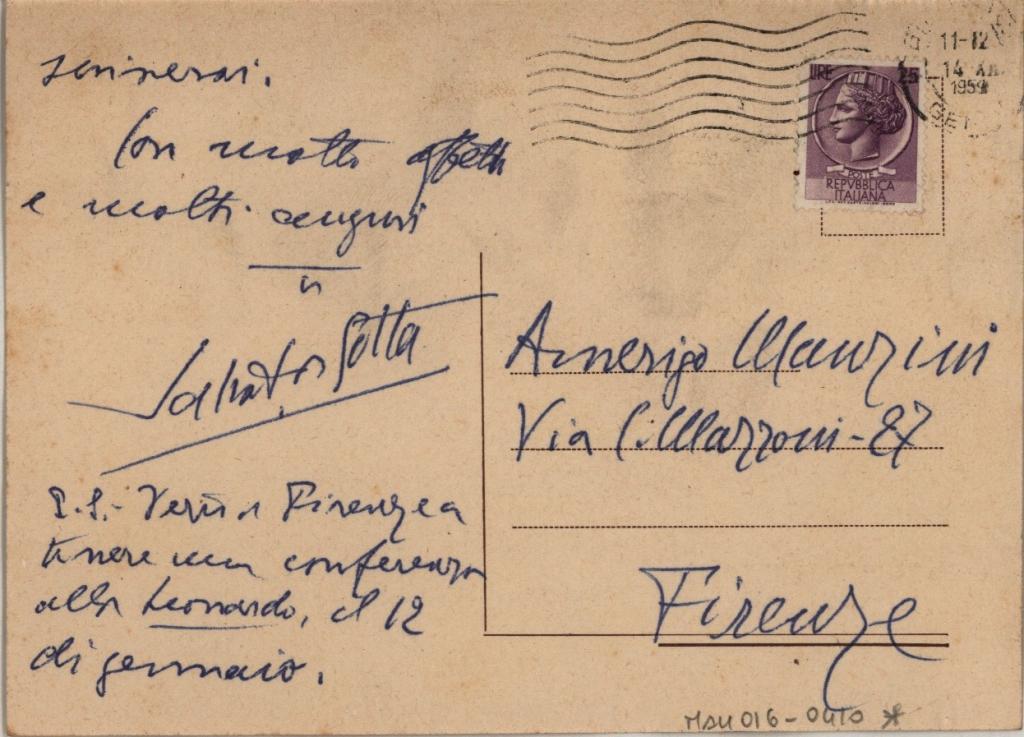 scriverai.
Con molto affetto
e molti auguri
tu
Salvator Gotta
P.S.- Verrò a Firenze a
tenere una conferenza
alla Leonardo, il 12
di gennaio.
11-12
14 XII
1959
LIRE 25
POSTE
REPVBBLICA
ITALIANA
Amerigo Manzini
Via C. Mazzoni-27
Firenze
MAN 016-0410 *